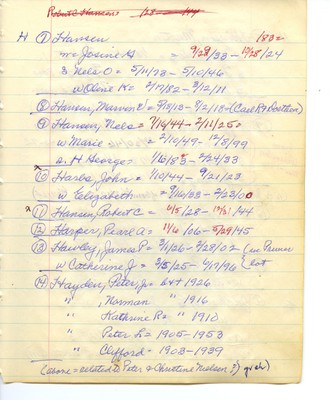 Robert C Hansen = 1/28 - 1/44
H ⑦ Hansen 1882
m= Josine H = 9/28/33 - 12/28/24
s Nels O= 5/11/78 - 5/10/46
w Olive K= 2/17/82 - 3/12/71
⑧ Hansen, Marvin E= 9/13/13 - 7/2/18 - (Carl R+
⑨ Hansen, Nels= 7/16/44 - 2/11/25=
w Marie = 2/10/49 - 12/8/99
s. H George= 1/16/83 - 2/24/33
x ⑩ Harbs, John = 1/10/44 - 9/21/23
w Elizabeth = 9/16/33 - 2/23/00
x ⑪ Hansen, Robert C = 11/5/28 - 12/31/44
⑫ Harper, Pearl A= 11/6/06 - 5/29/45
⑬ Hawley, James P= 3/1/26 - 7/28/02 (in Pruner
w Catherine J = 3/5/25 - 6/17/96 { lot
⑭ Hayden, Peter, Jr= b+d 1926
" , Norman " 1916
" Kathrine R= " 1910
" Peter L= 1905-1953
" Clifford= 1903-1939
(above = related to Peter & Christine Nielson?)